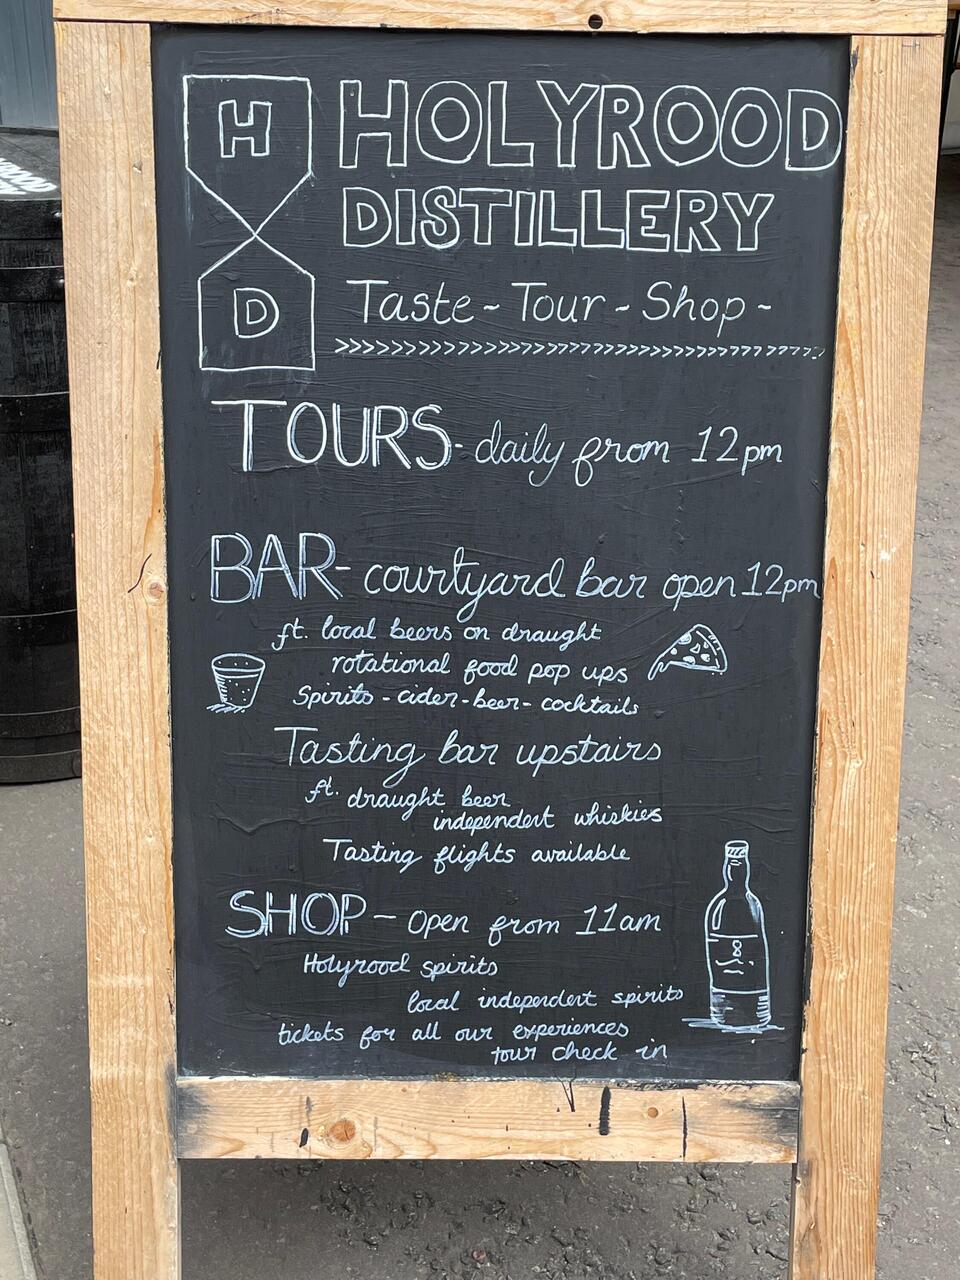 H
HOLYROOD
DISTILLERY
D
Taste ~ Tour ~ Shop ~
>>>>>>>>>>>>>>>>>>>>>>>>>>>>>>>>>>>>>
TOURS- daily from 12pm
BAR- courtyard bar open 12pm
ft. local beers on draught
rotational food pop ups
Spirits - cider - beer - cocktails
Tasting bar upstairs
ft. draught beer
independent whiskies
Tasting flights available
SHOP - open from 11am
Holyrood spirits
local independent spirits
tickets for all our experiences
tour check in